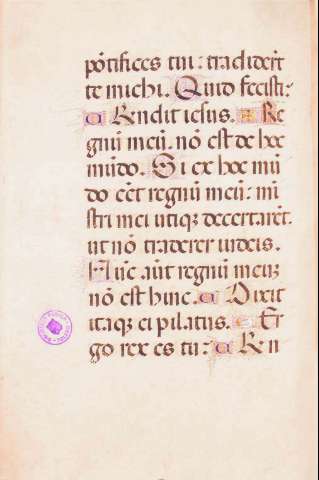 põtifices tui: tradiderũt
te michi. Quid fecisti:
Rñndit iesus. Re
gnũ meũ. nõ est de hoc
mũdo. Si ex hoc mũ
do eẽt regnũ meũ: mi
stri mei utiqz decertarẽt.
ut nõ traderer iudeis.
Nũc aũt regnũ meuz
nõ est hinc. Dixit
itaqz ei pilatus. Er
go rex es tu: Rñn